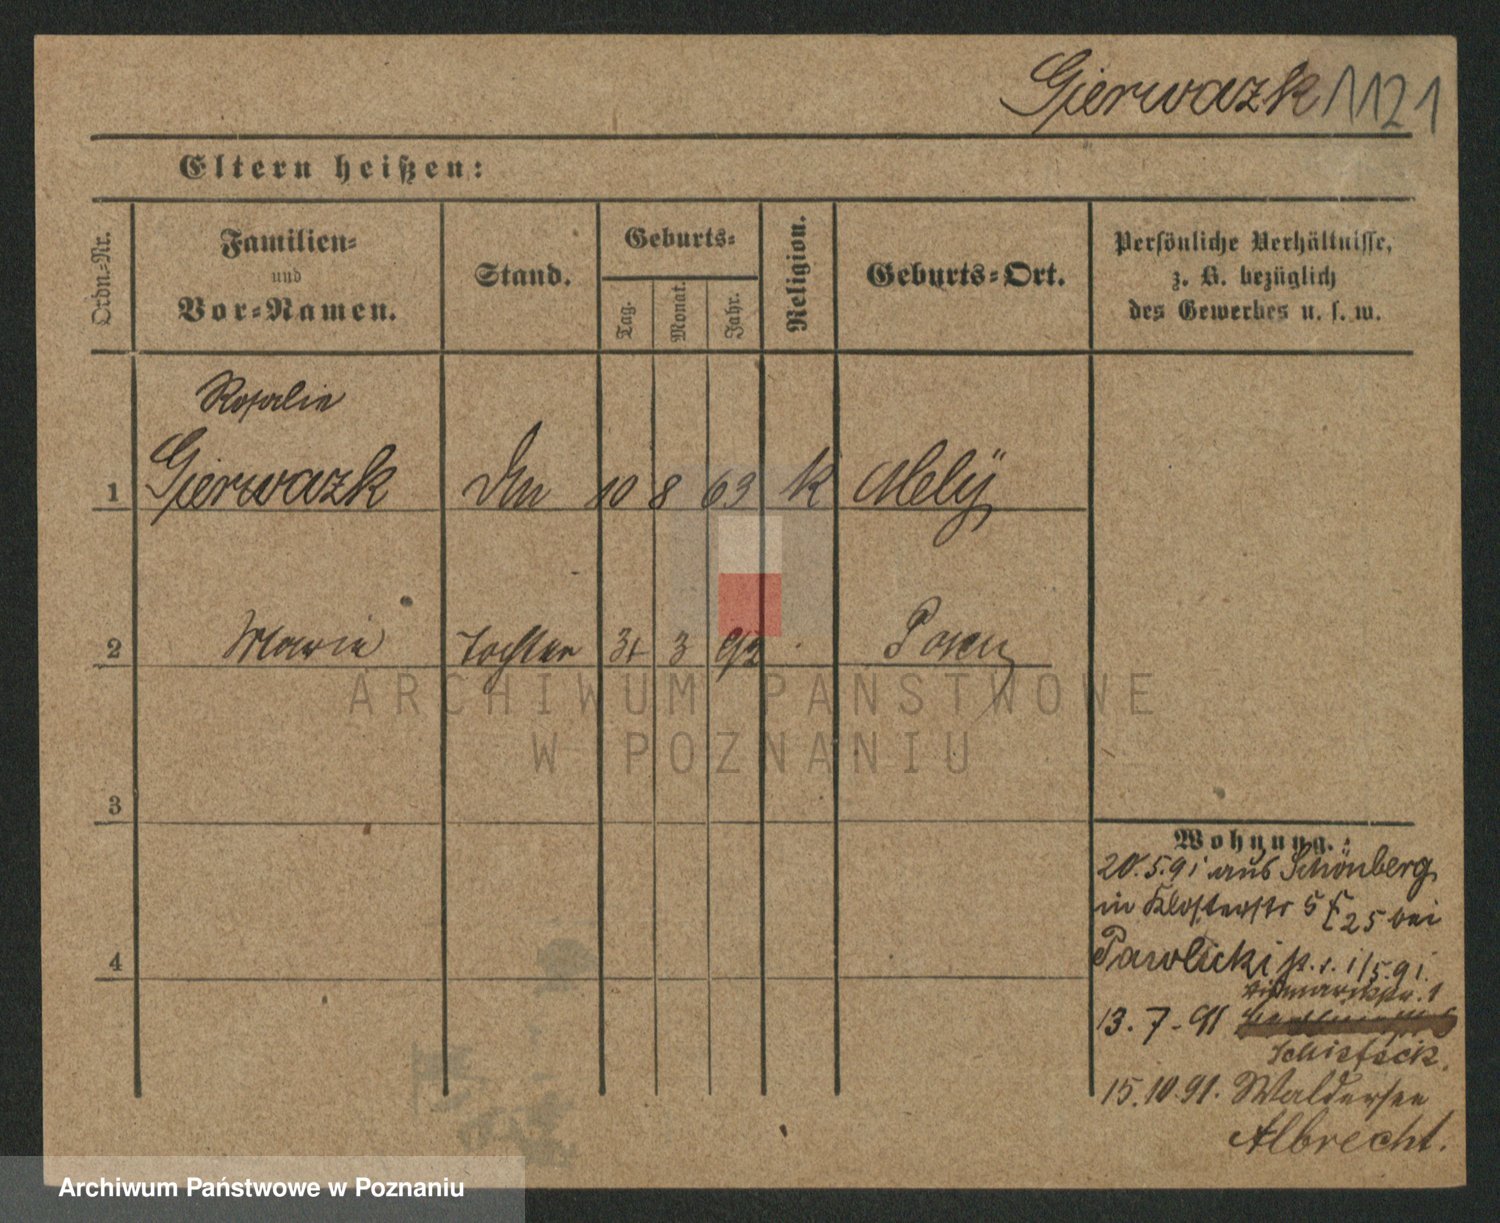 Gierwazk 1121
Eltern heißen:
Ordn.=Nr.
Familien=
und
Vor=Namen.
Stand.
Geburts=
Tag.
Monat.
Jahr.
Religion.
Geburts=Ort.
Persönliche Verhältnisse,
z. B. bezüglich
des Gewerbes u. s. w.
Rosalie
1 Gierwazk 10 8 63 k
2 Marie Tochter 31 3 92 Posen
ARCHIWUM PAŃSTWOWE
W POZNANIU
3
4
Wohnung.:
20.5.91 aus Schönberg
in Klosterstr 5 25 bei
Pawlicki 1/5.91.
Bismarckstr. 1
13.7-91
15.10.91. Waldersee
Albrecht.
Archiwum Państwowe w Poznaniu